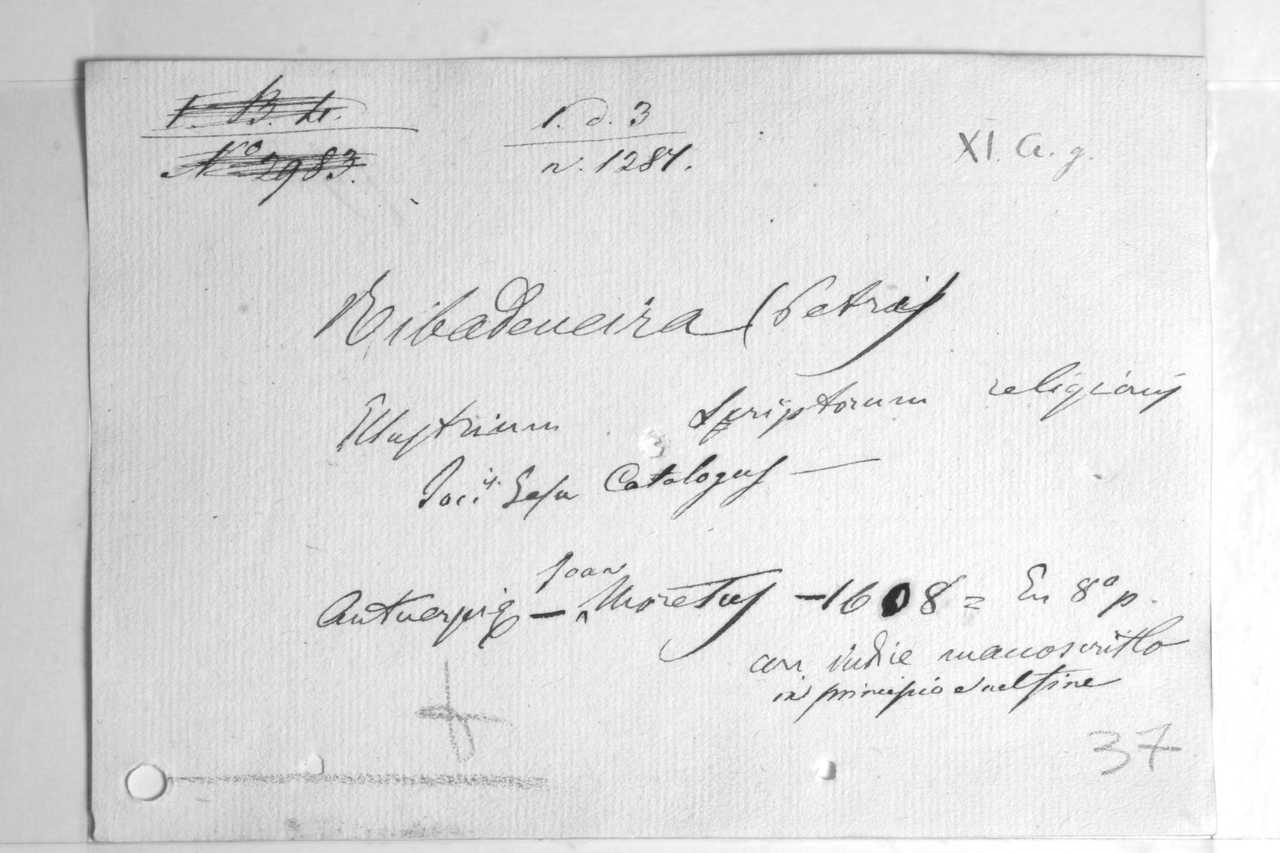 1. B. 4.
Nº 2983.
1. d. 3
n. 1287.
XI. a. g.
Ribadeneira (Petrus
Illustrium Scriptorum religionis
Soci.is Jesu Catalogus —
Antuerpiæ — Joan Moretus — 1608 = In 8º p.
con indice manoscritto
in principio e nel fine
37